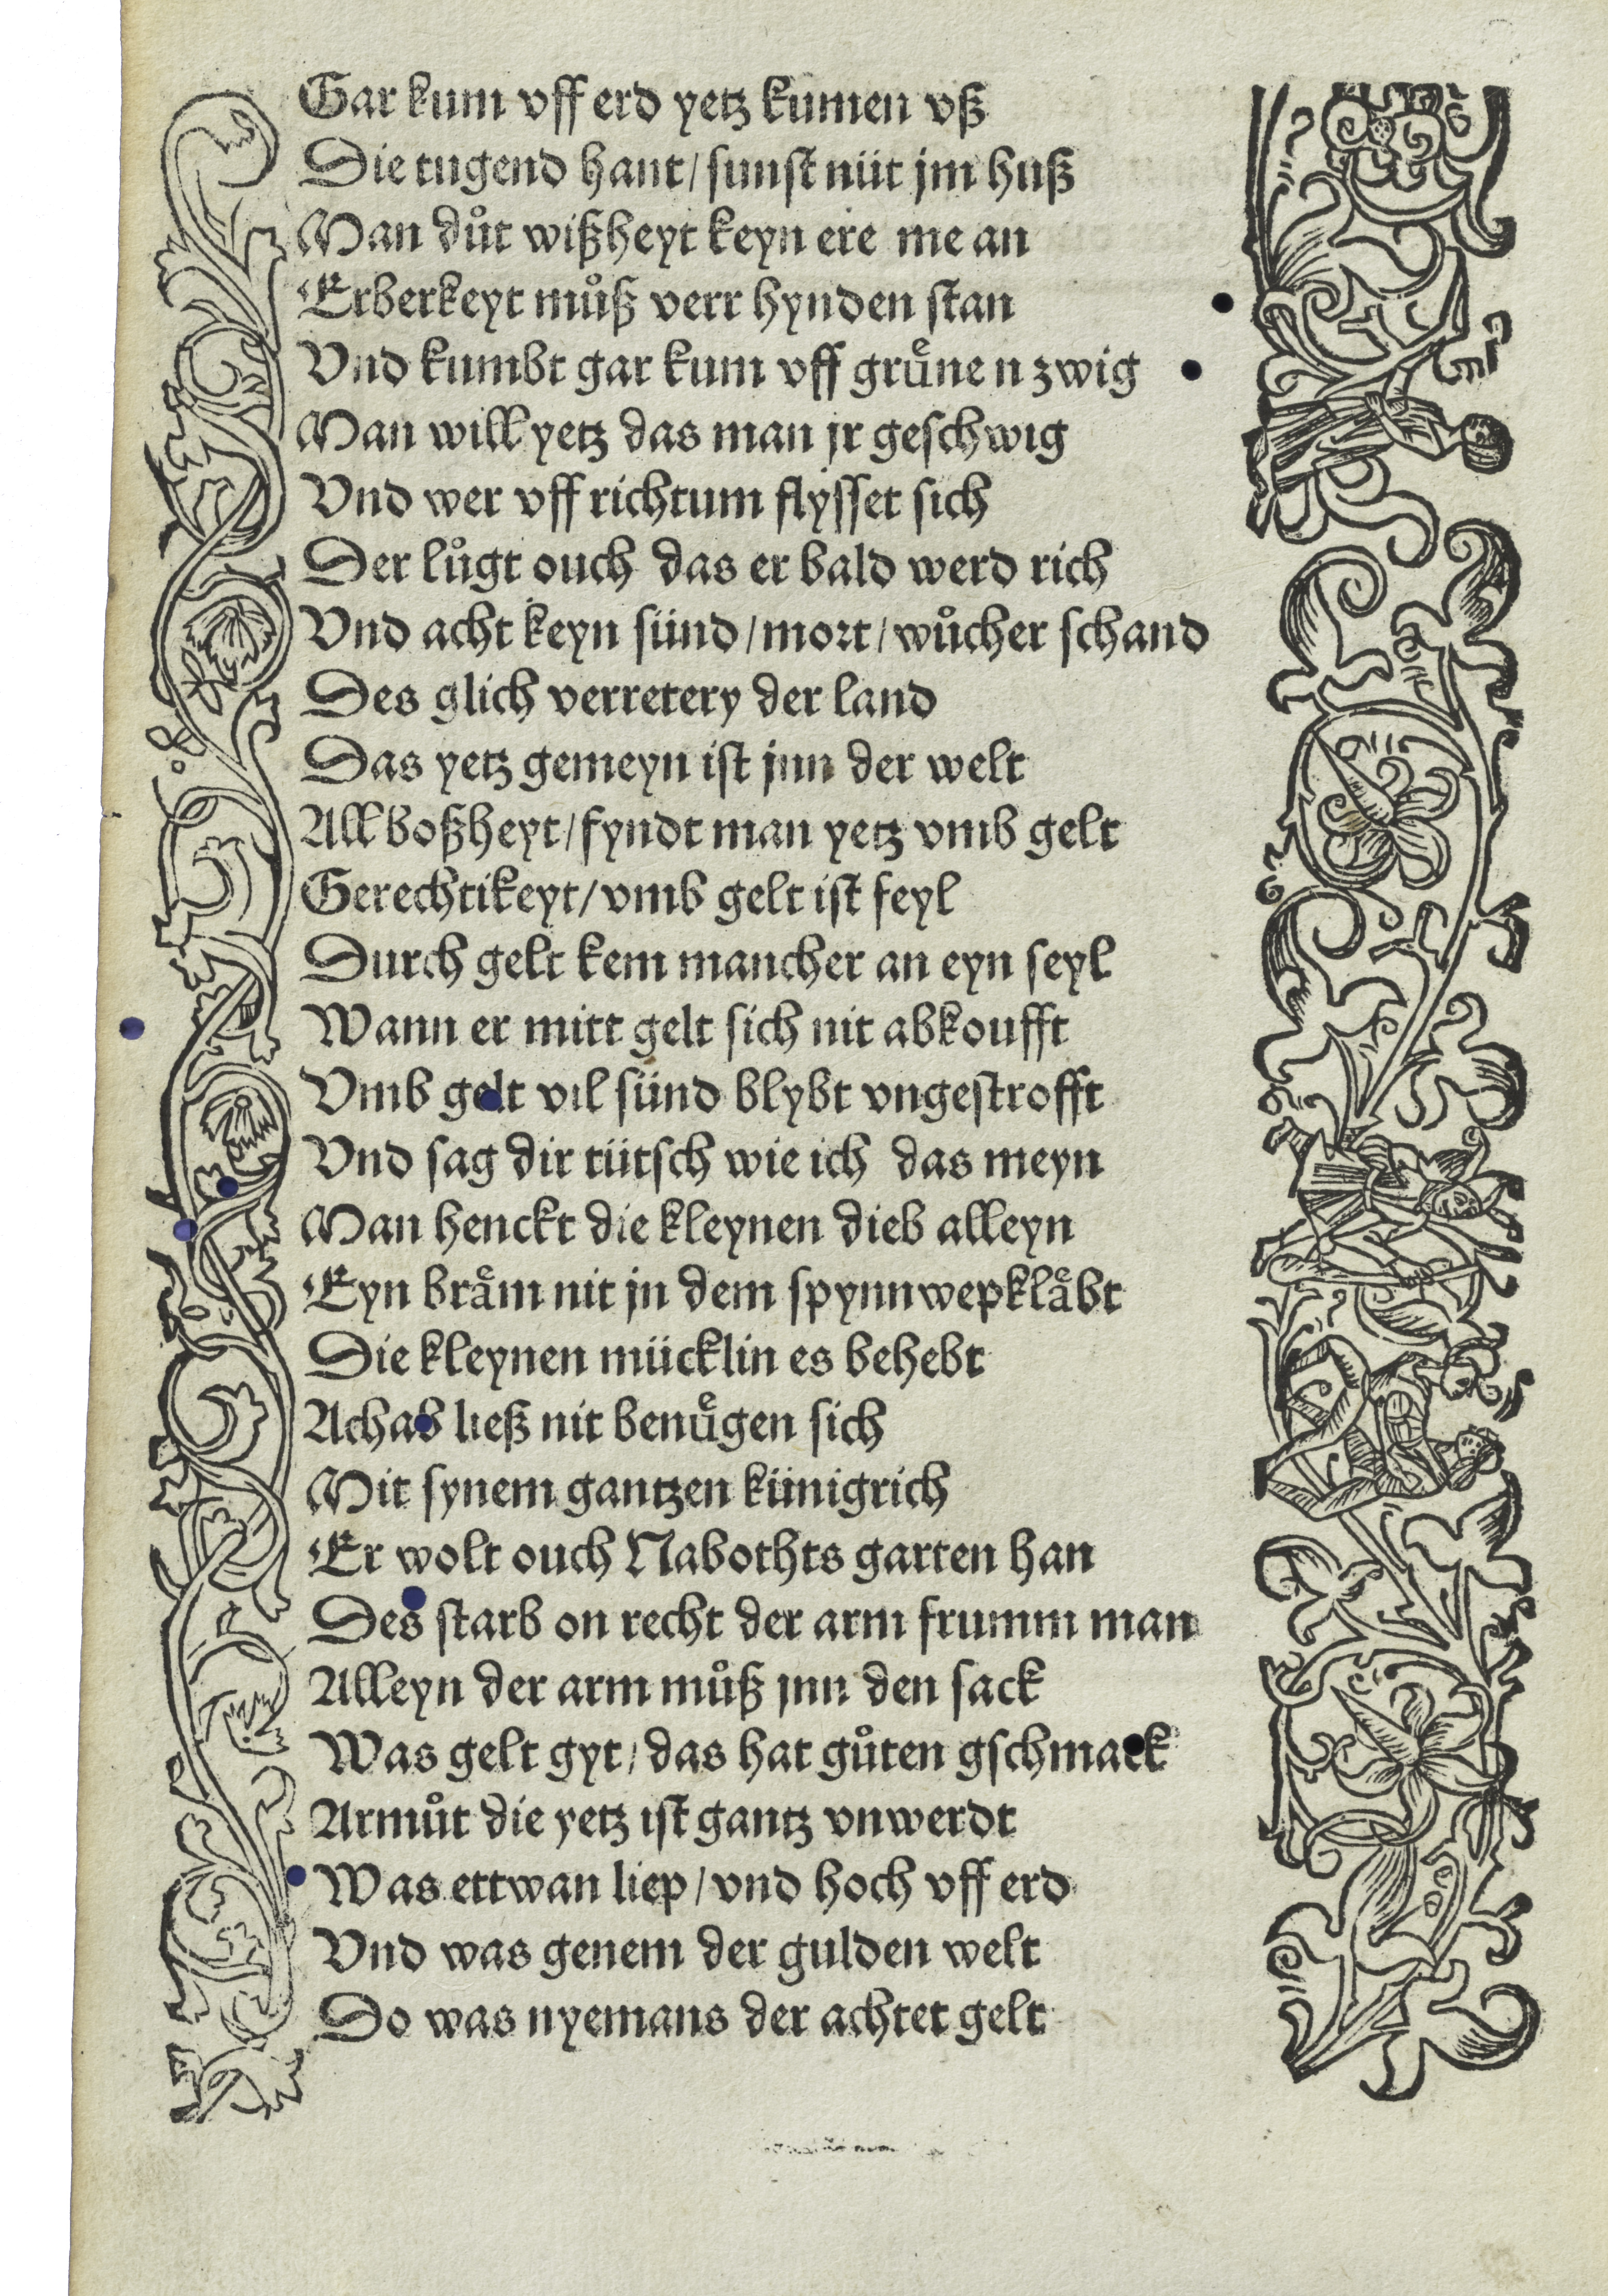 Gar kum vff erd yetz kumen vß
Die tugend hant/ sunst nüt jm huß
Man důt wißheyt keyn ere me an
Erberkeyt můß verr hynden stan
Vnd kumbt gar kum vff grůnen zwig
Man will yetz das man jr geschwig
Vnd wer vff richtum flysset sich
Der lůgt ouch das er bald werd rich
Vnd acht keyn sünd/ mort/ wůcher schand
Des glich verretery der land
Das yetz gemeyn ist jnn der welt
All boßheyt/ fyndt man yetz vmb gelt
Gerechtikeyt/ vmb gelt ist feyl
Durch gelt kem mancher an eyn seyl
Wann er mitt gelt sich nit abkoufft
Vmb gelt vil sünd blybt vngestrofft
Vnd sag dir tütsch wie ich das meyn
Man henckt die kleynen dieb alleyn
Eyn bråm nit jn dem spynnwep klåbt
Die kleynen mücklin es behebt
Achab ließ nit benůgen sich
Mit synem gantzen künigrich
Er wolt ouch Nabothts garten han
Des starb on recht der arm frumm man
Alleyn der arm můß jnn den sack
Was gelt gyt/ das hat gůten gschmack
Armůt die yetz ist gantz vnwerdt
Was ettwan liep/ vnd hoch vff erd
Vnd was genem der gulden welt
Do was nyemans der achtet gelt